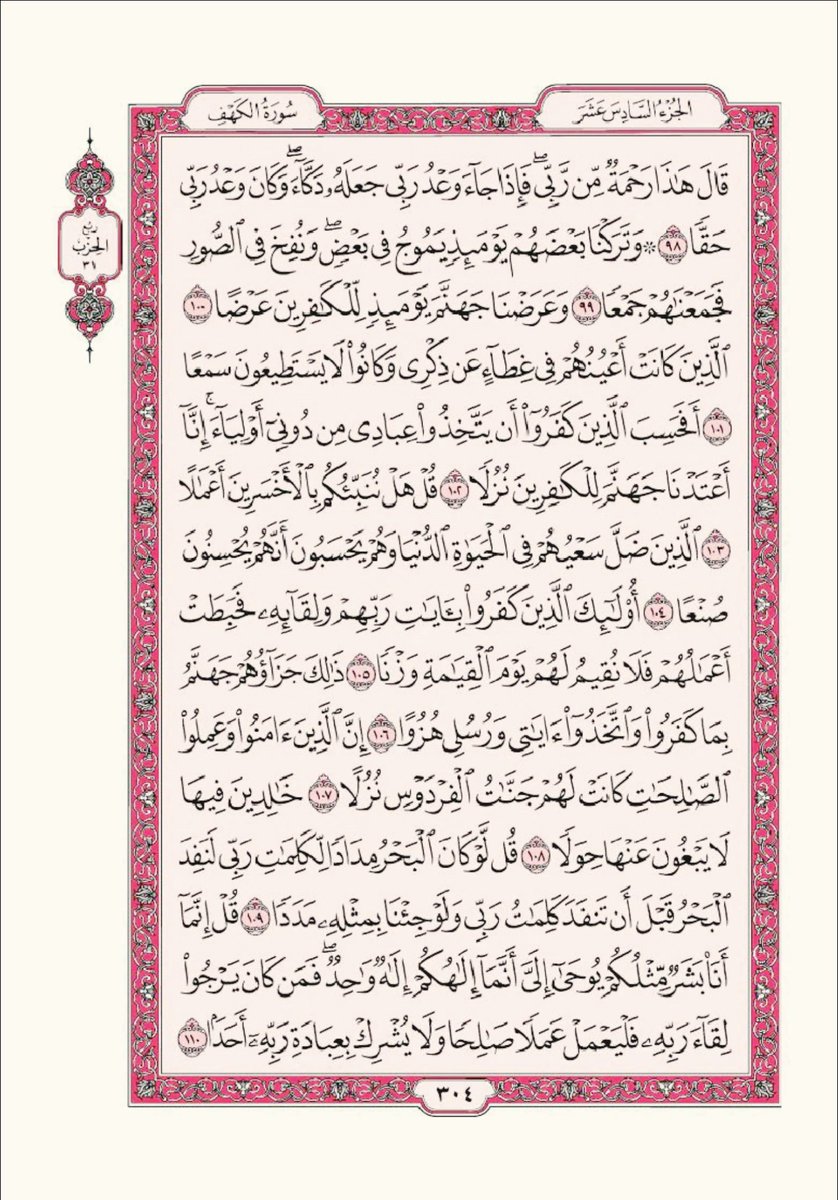 الجُزْءُ السَّادِسَ عَشَرَ
سُورَةُ الكَهْفِ
قَالَ هَٰذَا رَحْمَةٌ مِّن رَّبِّيۖ فَإِذَا جَآءَ وَعْدُ رَبِّي جَعَلَهُۥ دَكَّآءَۖ وَكَانَ وَعْدُ رَبِّي
حَقًّا ٩٨ ۞ وَتَرَكْنَا بَعْضَهُمْ يَوْمَئِذٍ يَمُوجُ فِي بَعْضٖۖ وَنُفِخَ فِي ٱلصُّورِ
فَجَمَعْنَٰهُمْ جَمْعًا ٩٩ وَعَرَضْنَا جَهَنَّمَ يَوْمَئِذٍ لِّلْكَٰفِرِينَ عَرْضًا ١٠٠
ٱلَّذِينَ كَانَتْ أَعْيُنُهُمْ فِي غِطَآءٍ عَن ذِكْرِي وَكَانُوا۟ لَا يَسْتَطِيعُونَ سَمْعًا
١٠١ أَفَحَسِبَ ٱلَّذِينَ كَفَرُوٓا۟ أَن يَتَّخِذُوا۟ عِبَادِي مِن دُونِيٓ أَوْلِيَآءَۚ إِنَّآ
أَعْتَدْنَا جَهَنَّمَ لِلْكَٰفِرِينَ نُزُلًا ١٠٢ قُلْ هَلْ نُنَبِّئُكُم بِٱلْأَخْسَرِينَ أَعْمَٰلًا
١٠٣ ٱلَّذِينَ ضَلَّ سَعْيُهُمْ فِي ٱلْحَيَوٰةِ ٱلدُّنْيَا وَهُمْ يَحْسَبُونَ أَنَّهُمْ يُحْسِنُونَ
صُنْعًا ١٠٤ أُو۟لَٰٓئِكَ ٱلَّذِينَ كَفَرُوا۟ بِـَٔايَٰتِ رَبِّهِمْ وَلِقَآئِهِۦ فَحَبِطَتْ
أَعْمَٰلُهُمْ فَلَا نُقِيمُ لَهُمْ يَوْمَ ٱلْقِيَٰمَةِ وَزْنًا ١٠٥ ذَٰلِكَ جَزَآؤُهُمْ جَهَنَّمُ
بِمَا كَفَرُوا۟ وَٱتَّخَذُوٓا۟ ءَايَٰتِي وَرُسُلِي هُزُوًا ١٠٦ إِنَّ ٱلَّذِينَ ءَامَنُوا۟ وَعَمِلُوا۟
ٱلصَّٰلِحَٰتِ كَانَتْ لَهُمْ جَنَّٰتُ ٱلْفِرْدَوْسِ نُزُلًا ١٠٧ خَٰلِدِينَ فِيهَا
لَا يَبْغُونَ عَنْهَا حِوَلًا ١٠٨ قُل لَّوْ كَانَ ٱلْبَحْرُ مِدَادًا لِّكَلِمَٰتِ رَبِّي لَنَفِدَ
ٱلْبَحْرُ قَبْلَ أَن تَنفَدَ كَلِمَٰتُ رَبِّي وَلَوْ جِئْنَا بِمِثْلِهِۦ مَدَدًا ١٠٩ قُلْ إِنَّمَآ
أَنَا۠ بَشَرٌ مِّثْلُكُمْ يُوحَىٰٓ إِلَيَّ أَنَّمَآ إِلَٰهُكُمْ إِلَٰهٌ وَٰحِدٌۖ فَمَن كَانَ يَرْجُوا۟
لِقَآءَ رَبِّهِۦ فَلْيَعْمَلْ عَمَلًا صَٰلِحًا وَلَا يُشْرِكْ بِعِبَادَةِ رَبِّهِۦٓ أَحَدًۢا ١١٠
رُبع
الحِزْب
٣١
٣٠٤